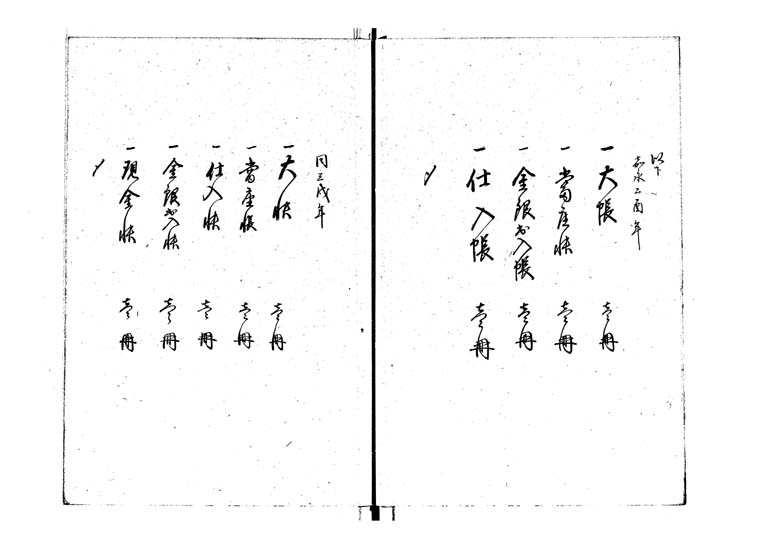 以下
嘉永二酉年
一大帳 壱冊
一當座帳 壱冊
一金銀出入帳 壱冊
一仕入帳 壱冊
〆
同三戌年
一大帳 壱冊
一當座帳 壱冊
一仕入帳 壱冊
一金銀出入帳 壱冊
一現金帳 壱冊
〆